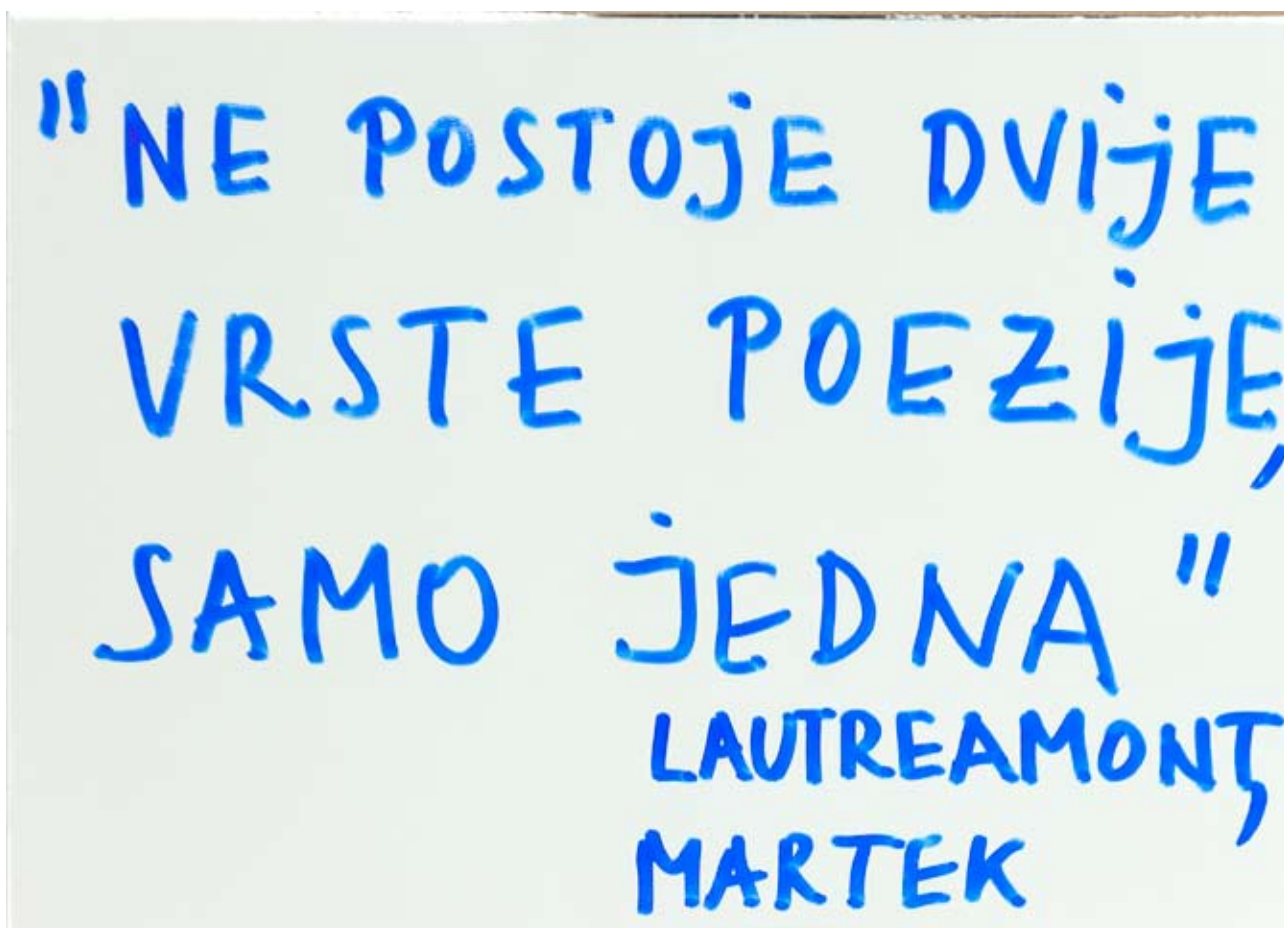 "NE POSTOJE DVIJE
VRSTE POEZIJE,
SAMO JEDNA"
LAUTREAMONT,
MARTEK